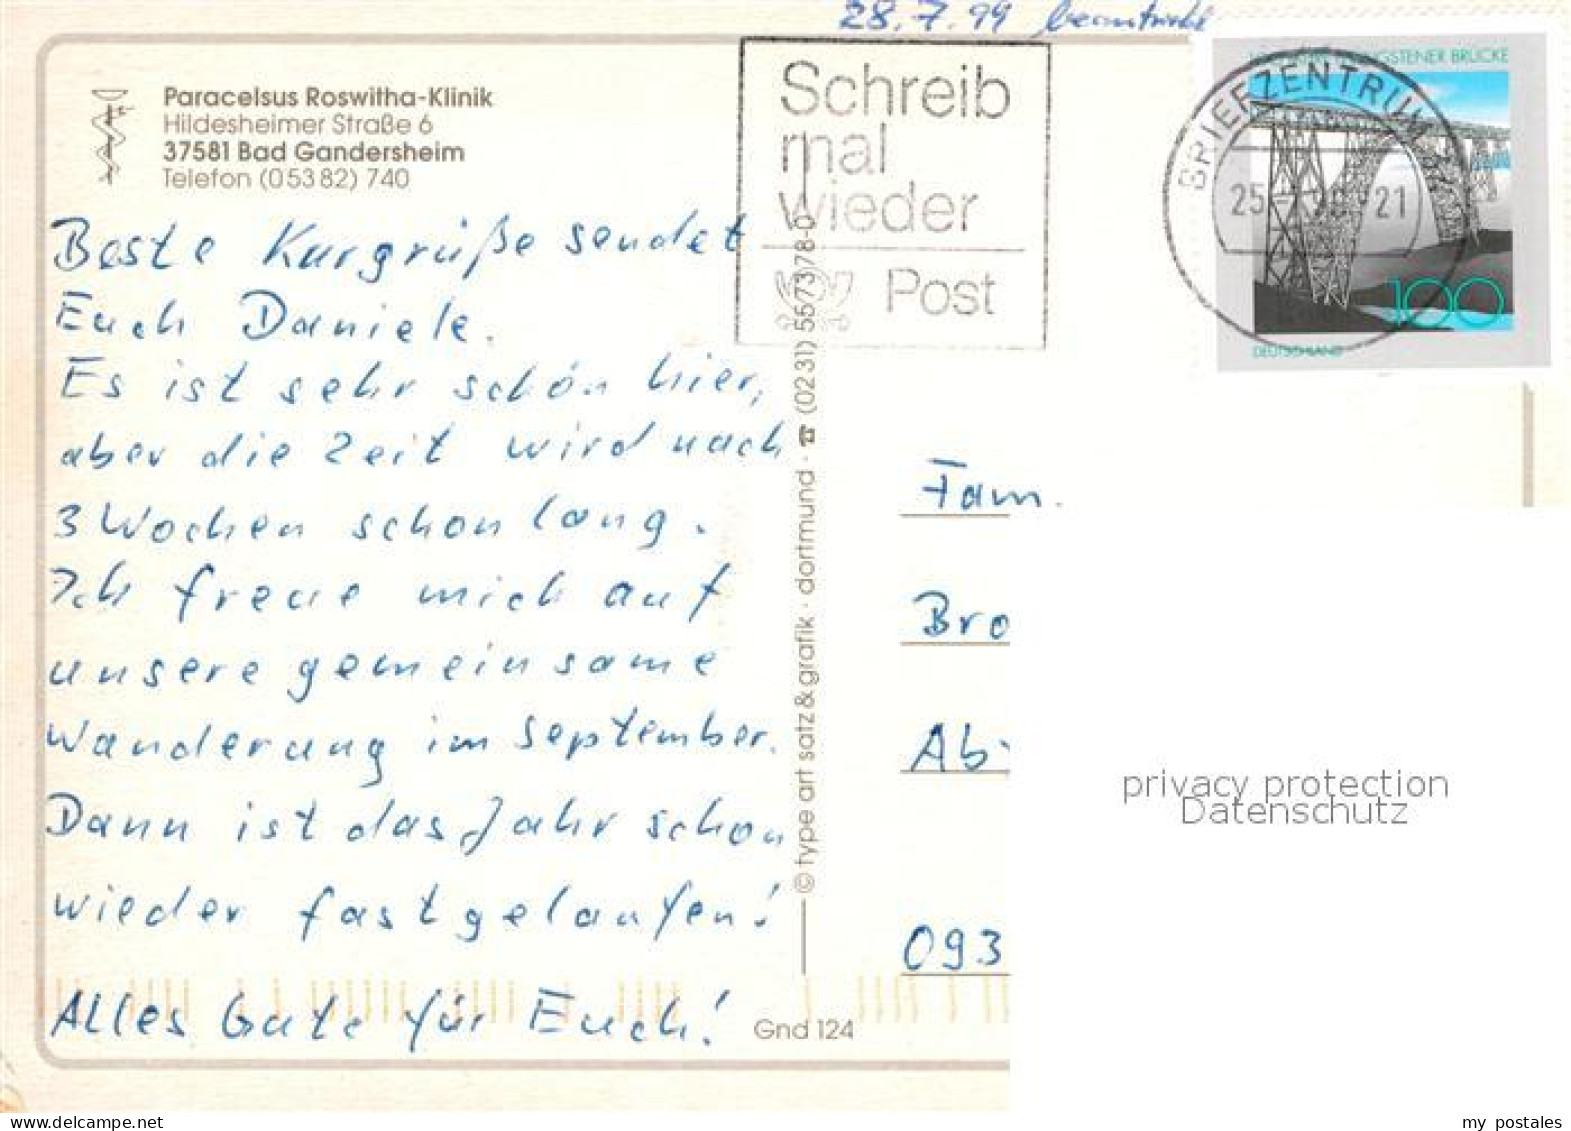 28.7.99 beantwortet
Paracelsus Roswitha-Klinik
Hildesheimer Straße 6
37581 Bad Gandersheim
Telefon (05382) 740
Schreib
mal
wieder
Post
NGSTENER BRÜCKE
BRIEFZENTRUM
25 21
100
DEUTSCHLAND
Beste Kurgrüße sendet
Euch Daniele.
Es ist sehr schön hier,
aber die Zeit wird nach
3 Wochen schon lang.
Ich freue mich auf
unsere gemeinsame
Wanderung im September.
Dann ist das Jahr schon
wieder fast gelaufen!
Alles Gute für Euch!
© type art satz & grafik · dortmund · ☎ (0231) 557378-0
Gnd 124
Fam.
Bro
Ab
093
privacy protection
Datenschutz
delcampe.net
my_postales